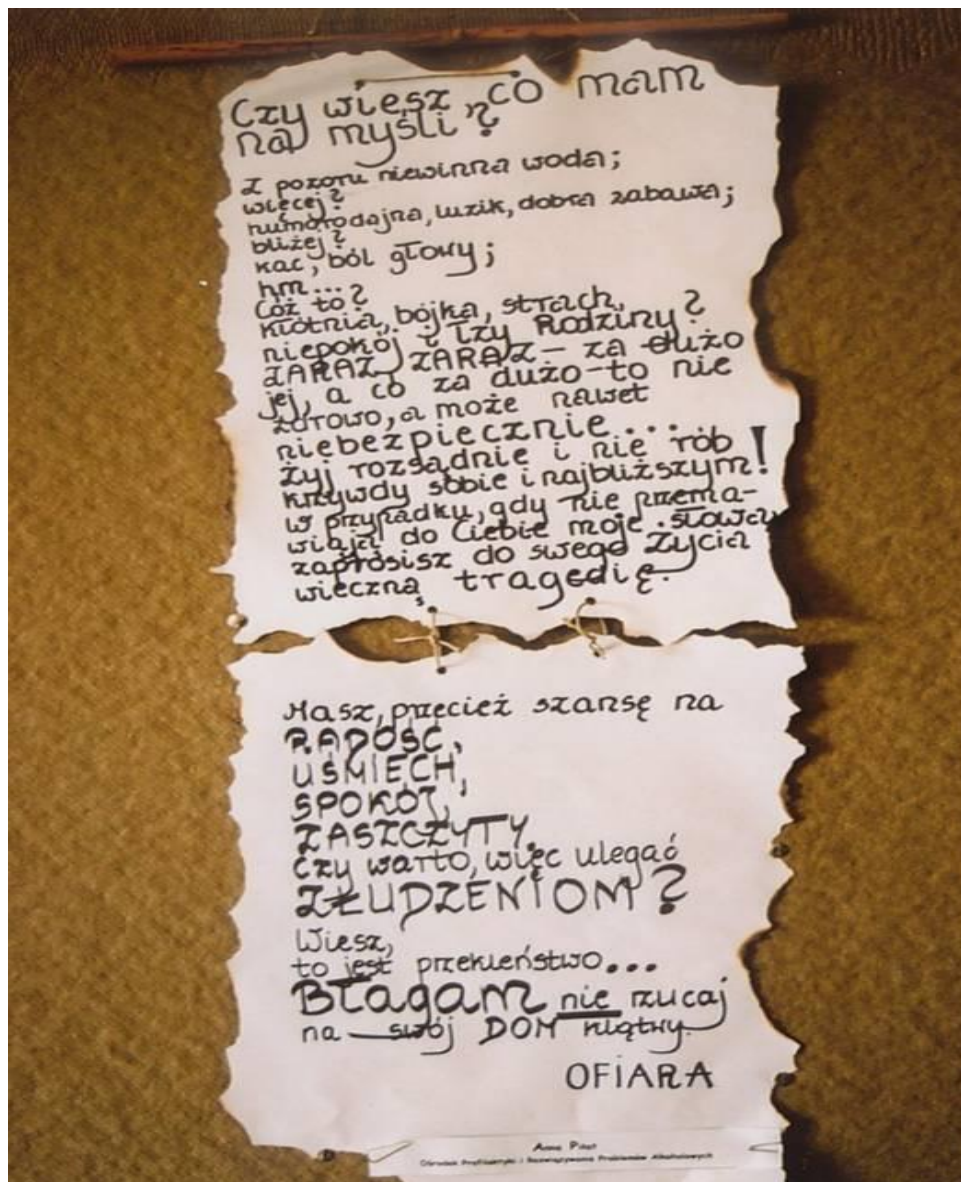 Czy wiesz, co mam
na myśli?
Z pozoru niewinna woda;
więcej?
humorodajna, luzik, dobra zabawa;
bliżej?
kac, ból głowy;
hm...
Cóż to?
kłótnia, bójka, strach,
niepokój i łzy Rodziny?
ZARAZ, ZARAZ - za dużo
jej, a co za dużo - to nie
zdrowo, a może nawet
niebezpiecznie...
Żyj rozsądnie i nie rób
krzywdy sobie i najbliższym!
w przypadku, gdy nie przema-
wiają do Ciebie moje słowa,
zaprosisz do swego życia
wieczną tragedię.
Masz, przecież szansę na
RADOŚĆ,
UŚMIECH,
SPOKÓJ,
ZASZCZYTY.
Czy warto, więc ulegać
ZŁUDZENIOM?
Wiesz,
to jest przekleństwo...
Błagam nie rzucaj
na swój DOM klątwy.
OFIARA
Anna
Ośrodek Profilaktyki i Rozwiązywania Problemów Alkoholowych